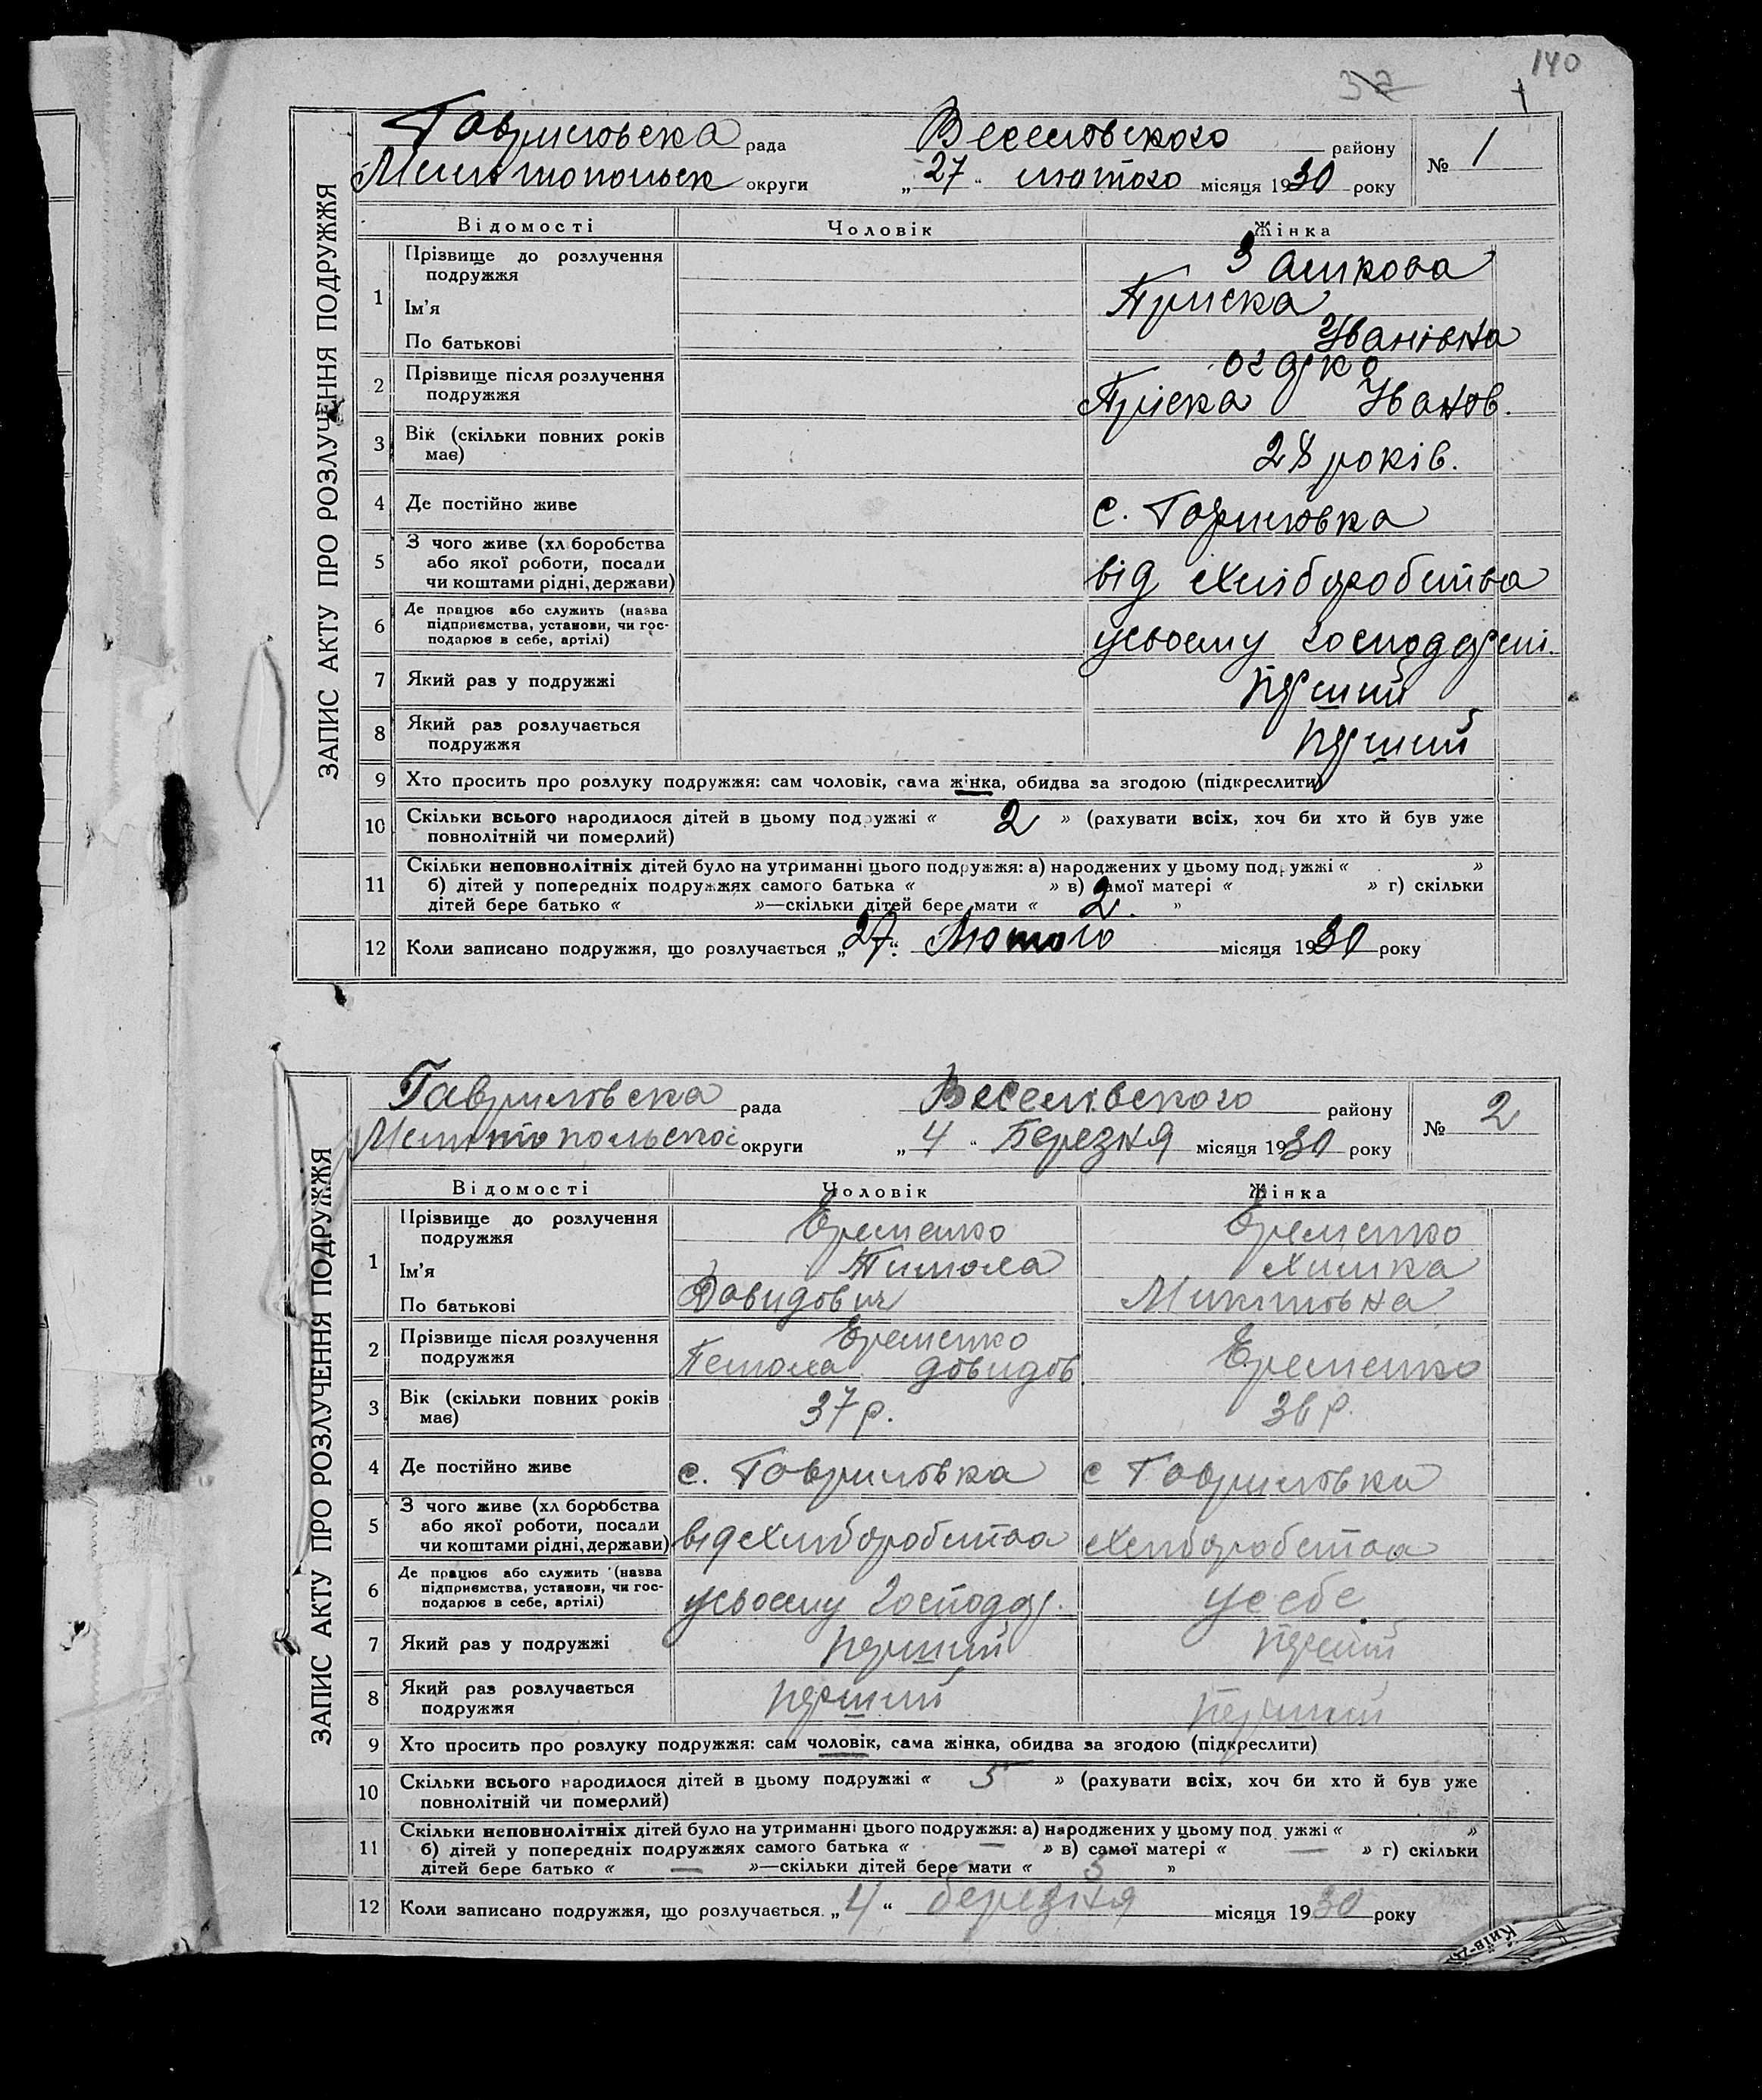 140
32
ЗАПИС АКТУ ПРО РОЗЛУЧЕННЯ ПОДРУЖЖЯ
Гавриловска рада Веселовского району № 1
Мелитопольск округи „27“ лютого місяця 1930 року
Відомості Чоловік Жінка
1 Прізвище до розлучення подружжя Залкова
Ім'я Приска
По батькові Іванівна
2 Прізвище після розлучення подружжя
Пріска Іванов.
3 Вік (скільки повних років має) 28 років.
4 Де постійно живе с. Гариловка
5 З чого живе (хліборобства або якої роботи, посади чи коштами рідні, держави) від хліборобства
6 Де працює або служить (назва підприємства, установи, чи господарює в себе, артілі) усьоему господарсі.
7 Який раз у подружжі перший
8 Який раз розлучається подружжя перший
9 Хто просить про розлуку подружжя: сам чоловік, сама жінка, обидва за згодою (підкреслити)
10 Скільки всього народилося дітей в цьому подружжі « 2 » (рахувати всіх, хоч би хто й був уже
повнолітній чи померлий)
11 Скільки неповнолітніх дітей було на утриманні цього подружжя: а) народжених у цьому подружжі « »
б) дітей у попередніх подружжях самого батька « » в) самої матері « » г) скільки
дітей бере батько « »—скільки дітей бере мати « 2. »
12 Коли записано подружжя, що розлучається „27“ Лютого місяця 1930 року
ЗАПИС АКТУ ПРО РОЗЛУЧЕННЯ ПОДРУЖЖЯ
Гавриловска рада Веселовского району № 2
Мелитопольскоі округи „4“ Березня місяця 1930 року
Відомості Чоловік Жінка
1 Прізвище до розлучення подружжя Еременко Еременко
Ім'я Химка
По батькові Давидович Микитовна
2 Прізвище після розлучення подружжя Еременко Еременко
довидов
3 Вік (скільки повних років має) 37 р. 36 р.
4 Де постійно живе с. Гавриловка с Гавриловка
5 З чого живе (хліборобства або якої роботи, посади чи коштами рідні, держави) від хлиборобства хлиборобства
6 Де працює або служить (назва підприємства, установи, чи господарює в себе, артілі) усьоему господар. у себе
7 Який раз у подружжі перший перший
8 Який раз розлучається подружжя перший перший
9 Хто просить про розлуку подружжя: сам чоловік, сама жінка, обидва за згодою (підкреслити)
10 Скільки всього народилося дітей в цьому подружжі « 5 » (рахувати всіх, хоч би хто й був уже
повнолітній чи померлий)
11 Скільки неповнолітніх дітей було на утриманні цього подружжя: а) народжених у цьому подружжі « »
б) дітей у попередніх подружжях самого батька « — » в) самої матері « — » г) скільки
дітей бере батько « — »—скільки дітей бере мати « 5 »
12 Коли записано подружжя, що розлучається „4“ березня місяця 1930 року